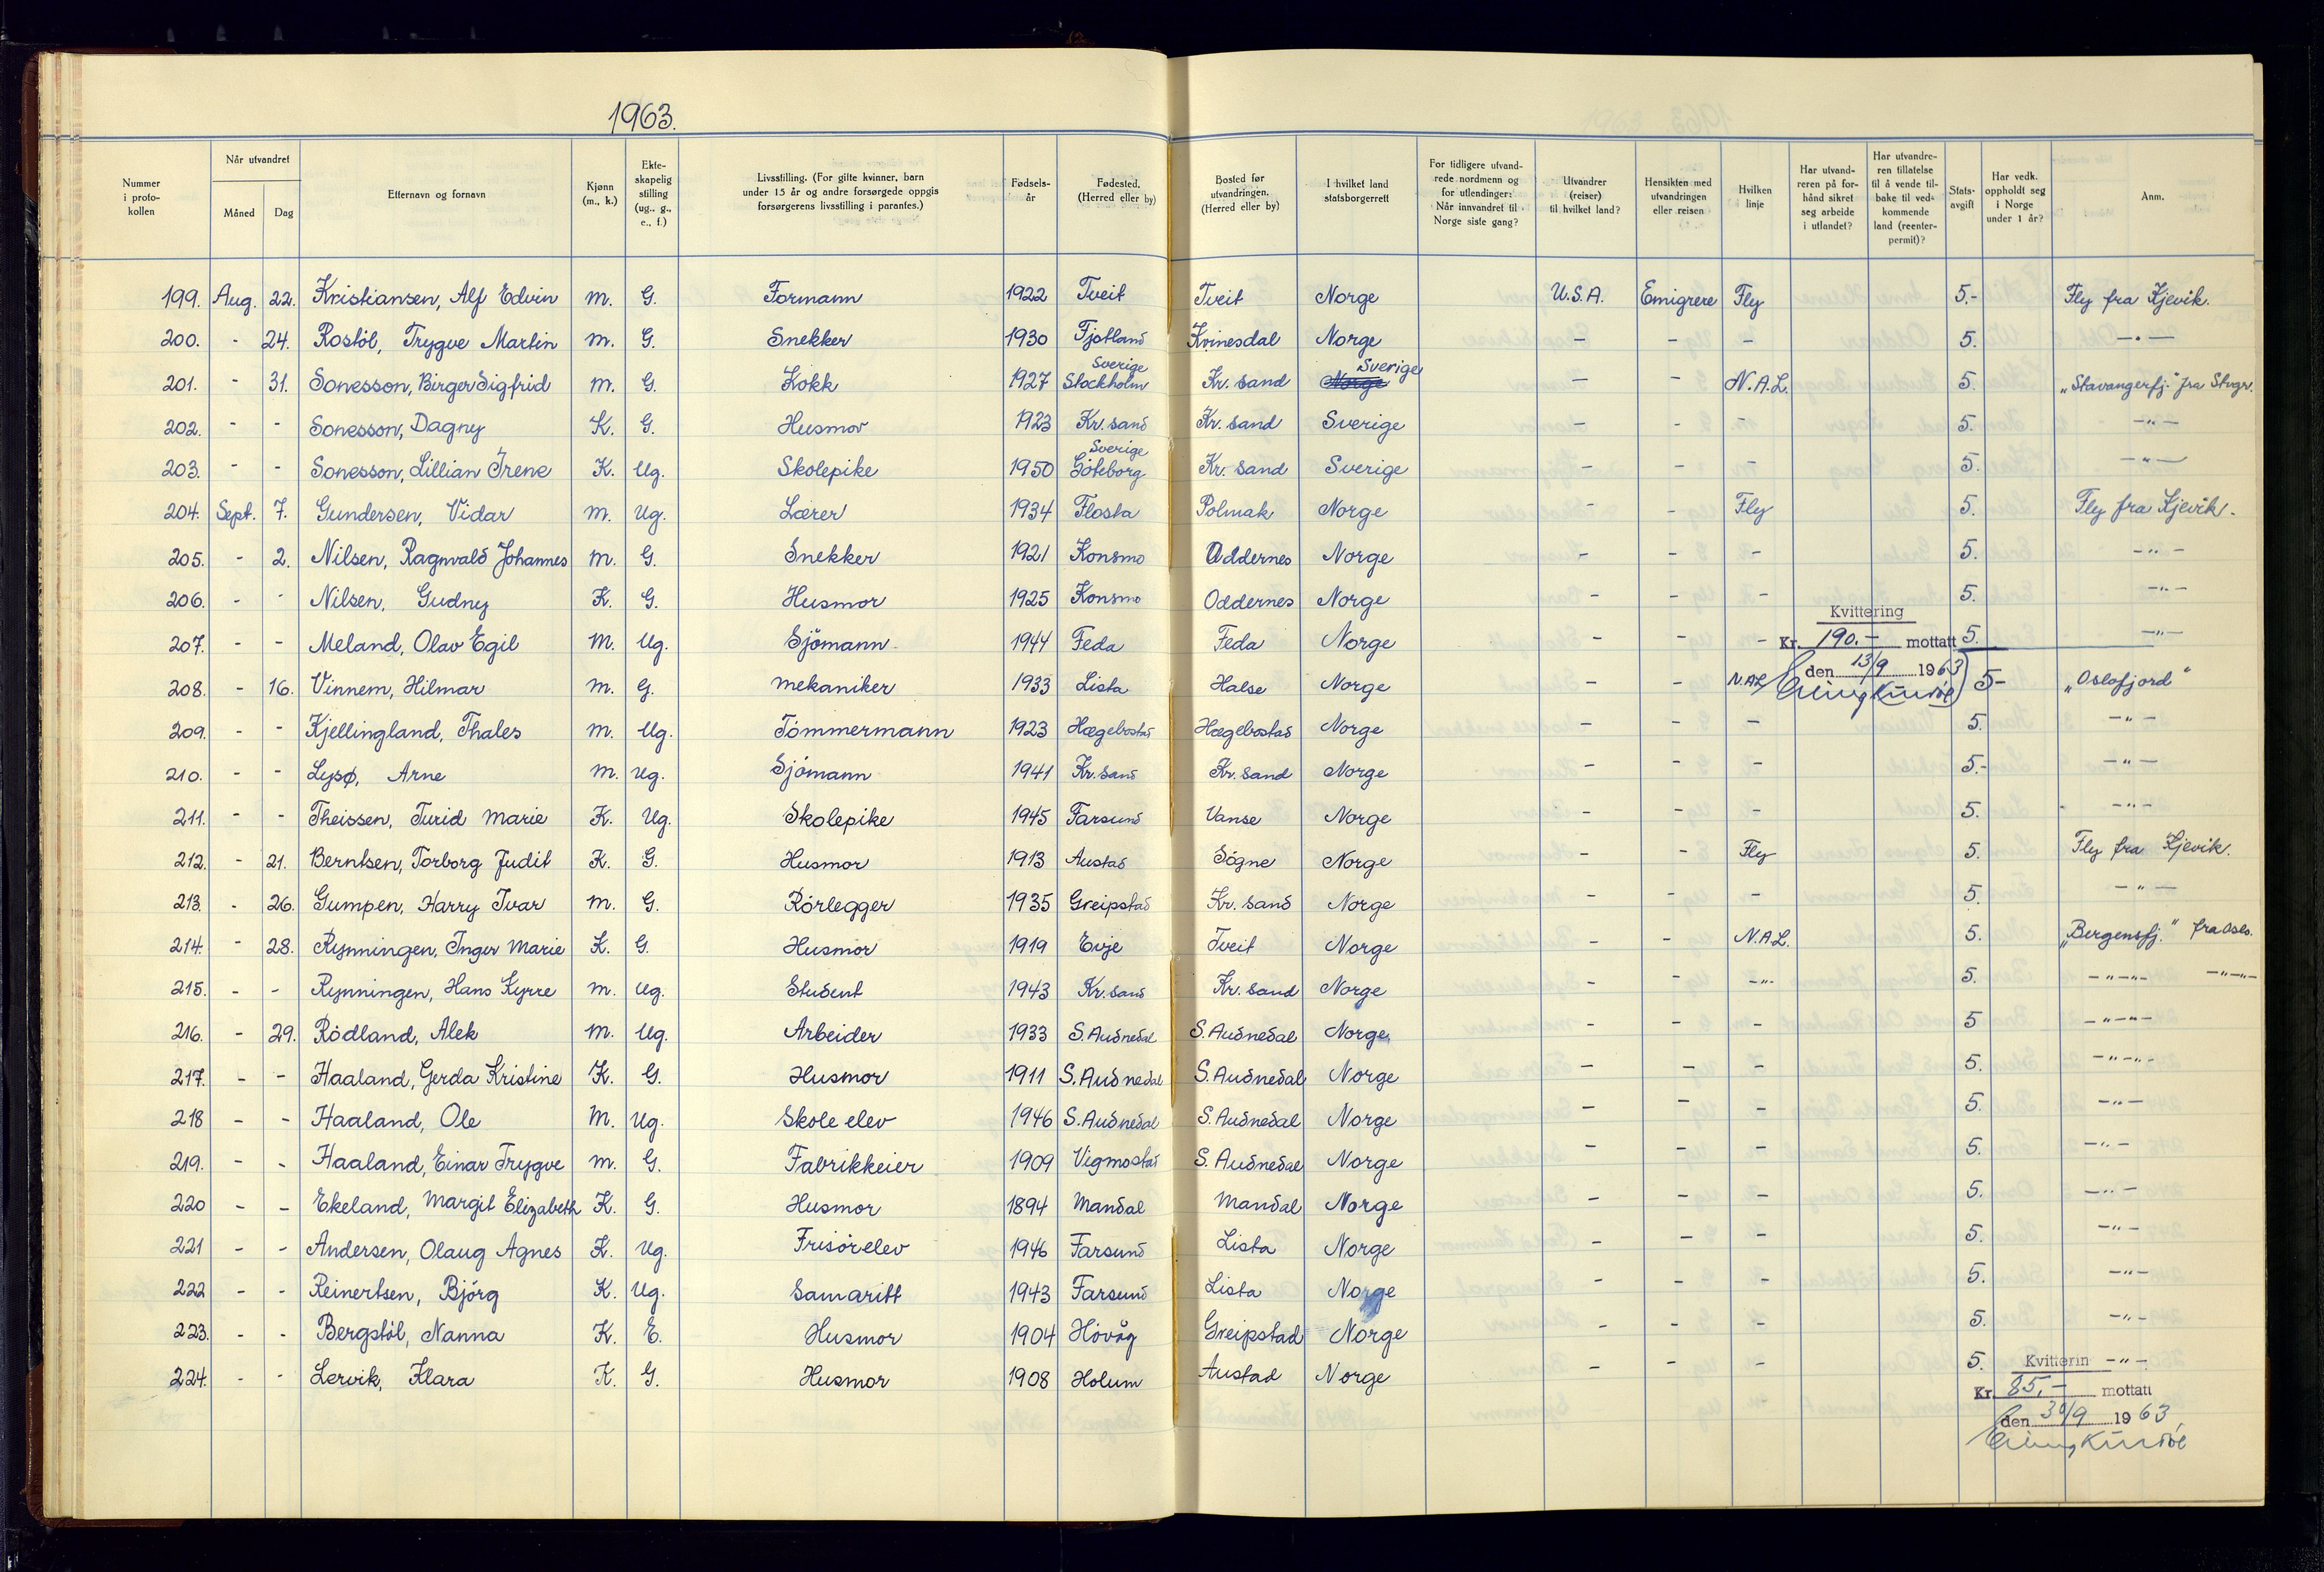 1963.
Nummer i protokollen | Når utvandret Måned Dag | Etternavn og fornavn | Kjønn (m., k.) | Ekteskapelig stilling (ug., g., e., f.) | Livsstilling. (For gifte kvinner, barn under 15 år og andre forsørgede oppgis forsørgerens livsstilling i parantes.) | Fødselsår | Fødested. (Herred eller by) | Bosted før utvandringen. (Herred eller by) | I hvilket land statsborgerrett | For tidligere utvandrede nordmenn og for utlendinger: Når innvandret til Norge siste gang? | Utvandrer (reiser) til hvilket land? | Hensikten med utvandringen eller reisen | Hvilken linje | Har utvandreren på forhånd sikret seg arbeide i utlandet? | Har utvandreren tillatelse til å vende tilbake til vedkommende land (reenterpermit)? | Statsavgift | Har vedk. oppholdt seg i Norge under 1 år? | Anm.
199. Aug. 22. Kristiansen, Alf Edvin m. G. Formann 1922 Tveit Tveit Norge U.S.A. Emigrere Fly 5.- Fly fra Kjevik.
200. - 24. Rostöl, Trygve Martin m. G. Snekker 1930 Fjotland Kvinesdal Norge - - - 5. -"-
201. - 31. Sonesson, Birger Sigfrid m. G. Kokk 1927 Sverige Stockholm Kr. sand Norge Sverige - - N.A.L. 5. "Stavangerfj." fra Stvgr.
202. - - Sonesson, Dagny K. G. Husmor 1923 Kr. sand Kr. sand Sverige - - - 5. -"-
203. - - Sonesson, Lillian Irene K. Ug. Skolepike 1950 Sverige Göteborg Kr. sand Sverige - - - 5. -"-
204. Sept. 7. Gundersen, Vidar m. Ug. Lærer 1934 Flosta Polmak Norge - - Fly 5. Fly fra Kjevik.
205. - 2. Nilsen, Ragnvald Johannes m. G. Snekker 1921 Konsmo Oddernes Norge - - - 5. -"-
206. - - Nilsen, Gudny K. G. Husmor 1925 Konsmo Oddernes Norge - - - 5. -"-
Kvittering
207. - - Meland, Olav Egil M. Ug. Sjömann 1944 Feda Feda Norge - - - Kr. 190.- mottatt 5. -"-
den 13/9 1963
208. - 16. Vinnem, Hilmar m. G. mekaniker 1933 Lista Halse Norge - - N.A.L 5- "Oslofjord"
209. - - Kjellingland, Thales m. Ug. Tömmermann 1923 Hægebostad Hægebostad Norge - - - 5. -"-
210. - - Lysø, Arne m. Ug. Sjömann 1941 Kr. sand Kr. sand Norge - - - 5.- -"-
211. - - Theissen, Turid Marie K. Ug. Skolepike 1945 Farsund Vanse Norge - - - 5. -"-
212. - 21. Berntsen, Torborg Judit K. G. Husmor 1913 Austad Sögne Norge - - Fly 5. Fly fra Kjevik.
213. - 26. Gumpen, Harry Ivar m. G. Rörlegger 1935 Greipstad Kr. sand Norge - - - 5. -"-
214. - 28. Rynningen, Inger Marie K. G. Husmor 1919 Evje Tveit Norge - - N.A.L. 5. "Bergensfj." fra Oslo.
215. - - Rynningen, Hans Kyrre m. Ug. Student 1943 Kr. sand Kr. sand Norge - - -"- 5. -"-"- -"-"-
216. - 29. Rödland, Alek m. Ug. Arbeider 1933 S. Audnedal S. Audnedal Norge - - - 5 -"-"-
217. - - Haaland, Gerda Kristine K. G. Husmor 1911 S. Audnedal S. Audnedal Norge - - - 5. -"-"-
218 - - Haaland, Ole M. Ug. Skole elev 1946 S. Audnedal S. Audnedal Norge - - - 5. -"-
219. - - Haaland, Einar Trygve m. G. Fabrikkeier 1909 Vigmostad S. Audnedal Norge - - - 5. -"-
220 - - Ekeland, Margit Elizabeth K. G. Husmor 1894 Mandal Mandal Norge - - - 5. -"-
221 - - Andersen, Olaug Agnes K. Ug. Frisörelev 1946 Farsund Lista Norge - - - 5. -"-
222 - - Reinertsen, Björg K. Ug. Samaritt 1943 Farsund Lista Norge - - - 5. -"-
223. - - Bergstöl, Nanna K. E. Husmor 1904 Hövåg Greipstad Norge - - - 5. -"-
224. - - Lervik, Klara K. G. Husmor 1908 Holum Austad Norge - - - 5. Kvitterin -"-
Kr. 85,- mottatt
den 30/9 1963